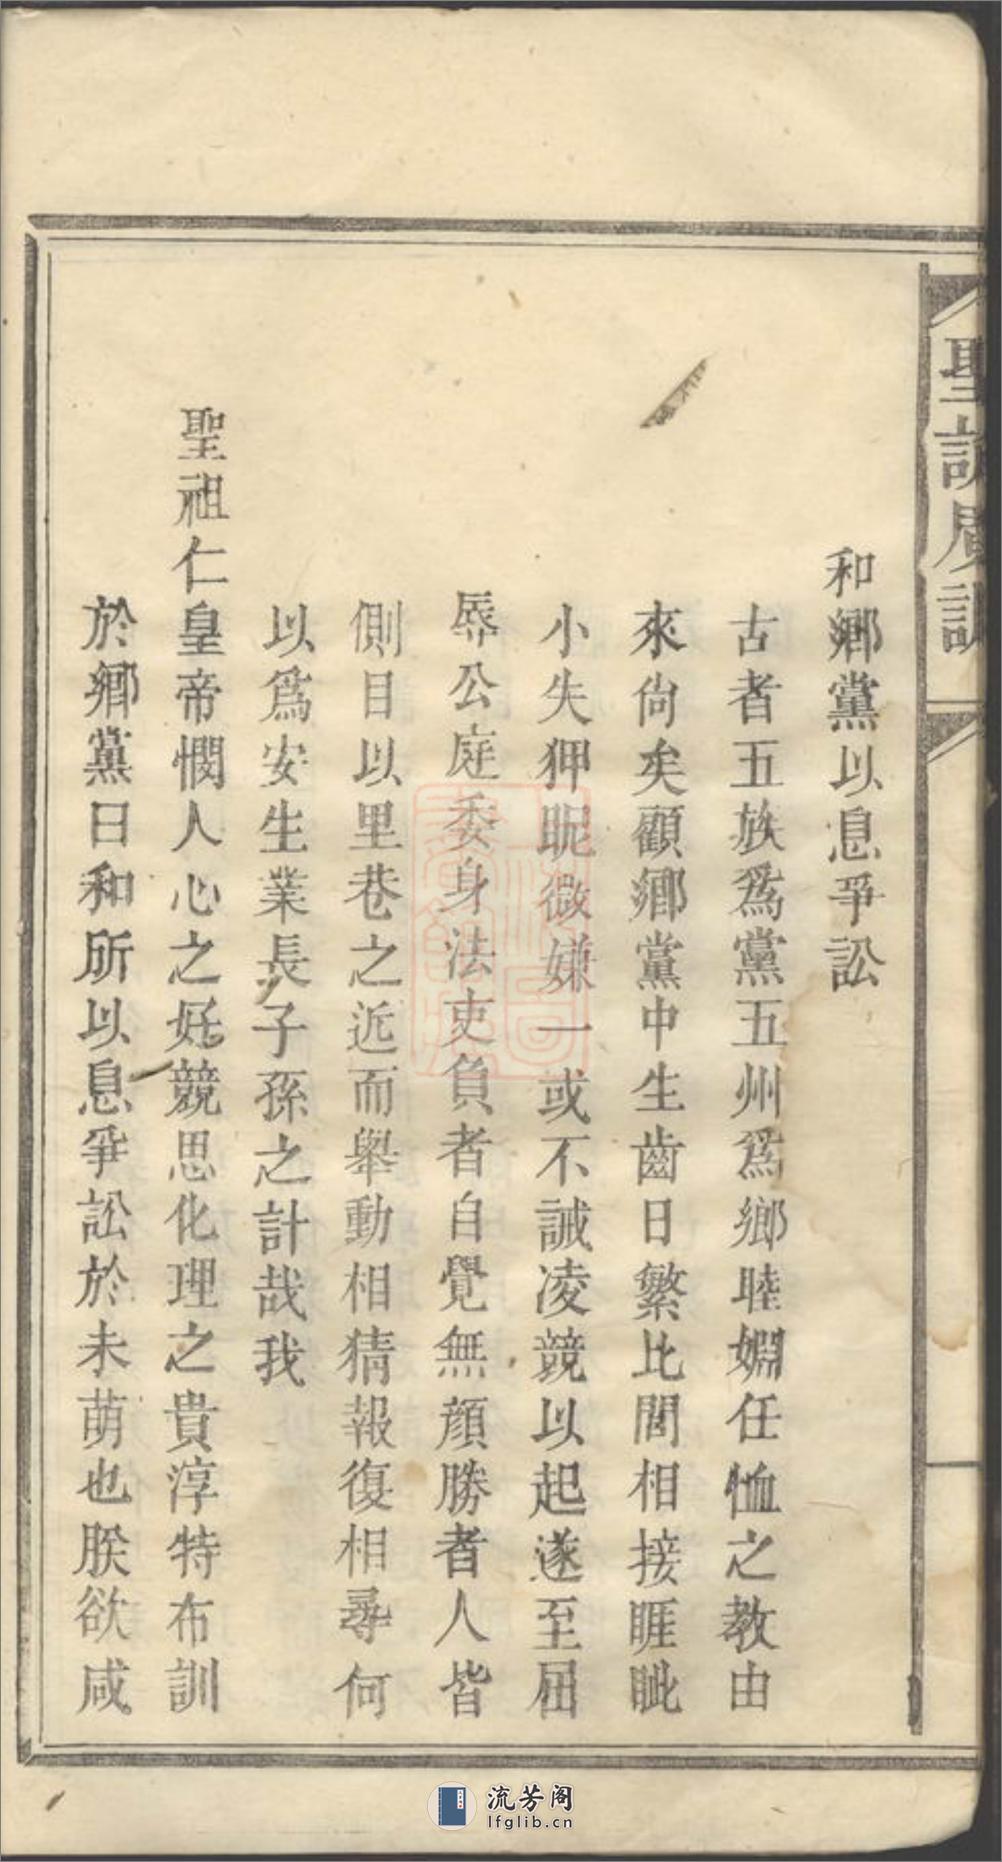 聖諭廣訓
和鄉黨以息爭訟
古者五族爲黨五州爲鄉睦婣任恤之教由
來尙矣顧鄉黨中生齒日繁比閭相接睚眦
小失狎昵微嫌一或不誡凌競以起遂至屈
辱公庭委身法吏負者自覺無顔勝者人皆
側目以里巷之近而舉動相猜報復相尋何
以爲安生業長子孫之計哉我
聖祖仁皇帝憫人心之好競思化理之貴淳特布訓
於鄉黨曰和所以息爭訟於未萌也朕欲咸
流芳阁
lfglib.cn